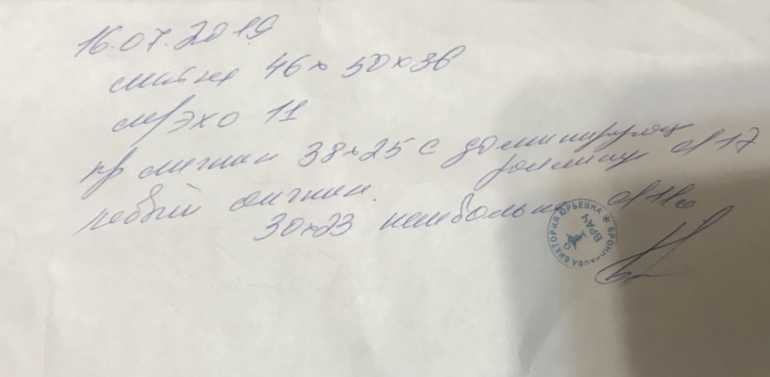 16.07.2019
матка 46×50×38
м/эхо 11
пр яичник 38×25 с доминирующ
фолликул d 17
левый яичник
30×23 наибольш d 11
ВИКТОРИЯ ЮРЬЕВНА
ВРАЧ